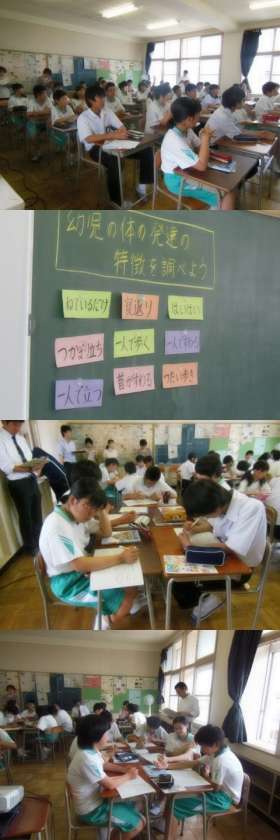 幼児の体の発達の
特徴を調べよう
ねているだけ 寝返り はいはい
つかまり立ち 一人で歩く 一人ですわる
一人で立つ 首がすわる つたい歩き